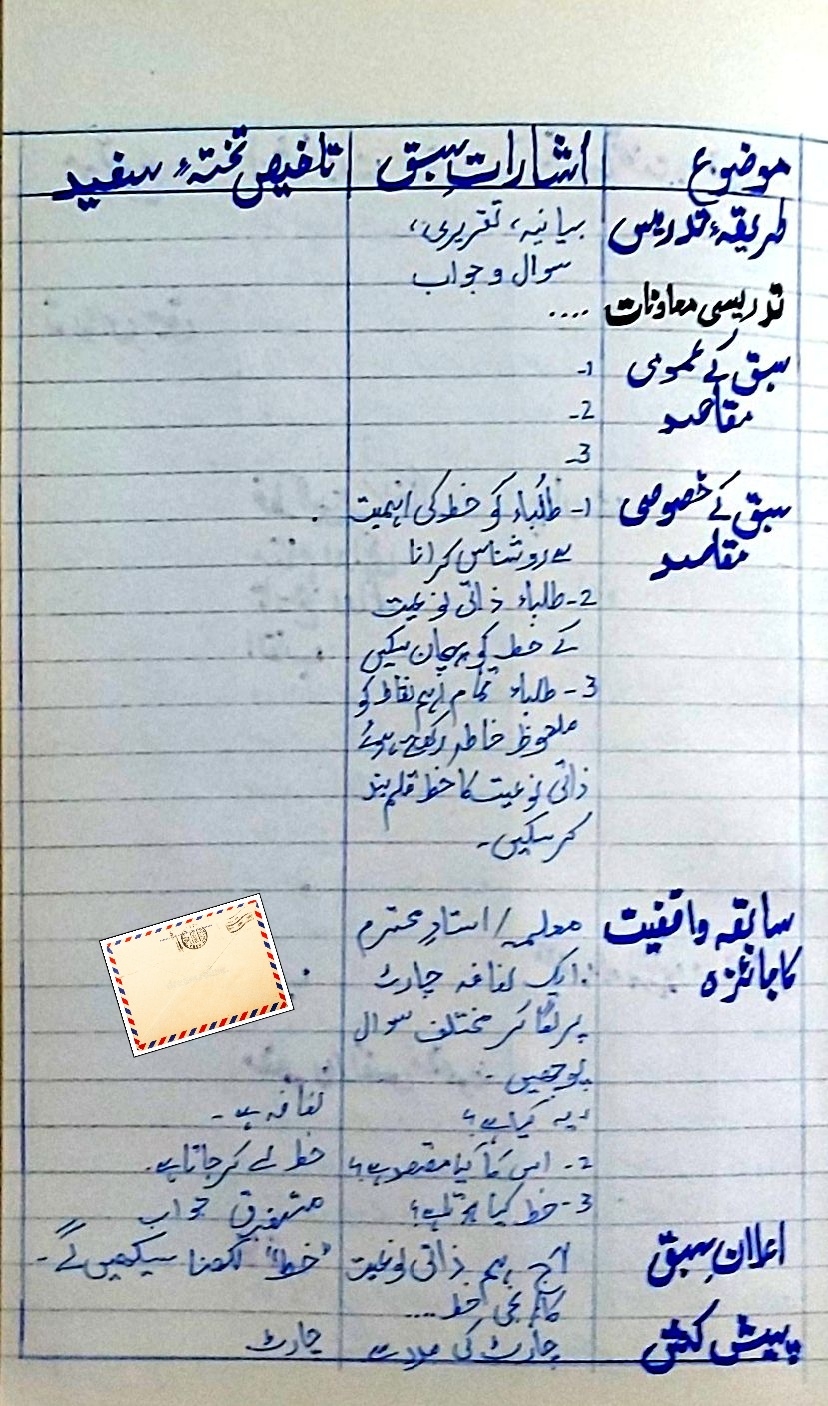 موضوع اشاراتِ سبق تلخیص تختہء سفید
طریقہء تدریس بیانیہ، تقریری،
سوال و جواب
تدریسی معاونات ....
سبق کے عمومی 1-
مقاصد 2-
3-
سبق کے خصوصی 1- طلباء کو خط کی اہمیت
مقاصد سے روشناس کرانا
2- طلباء ذاتی نوعیت
کے خط کو پہچان سکیں
3- طلباء تمام اہم نقاط کو
ملحوظ خاطر رکھتے ہوئے
ذاتی نوعیت کا خط قلم بند
کر سکیں۔
سابقہ واقفیت معلمہ/استادِ محترم
کا جائزہ ایک لفافہ چارٹ
پر لگا کر مختلف سوال
پوچھیں۔
1 یہ کیا ہے؟ لفافہ ہے۔
2- اس کا کیا مقصد ہے؟ خط لے کر جاتا ہے۔
3- خط کیا ہوتا ہے؟ متفرق جواب
اعلانِ سبق آج ہم ذاتی نوعیت "خط" لکھنا سیکھیں گے۔
کا نجی خط ....
پیش کش چارٹ کی مدد سے چارٹ